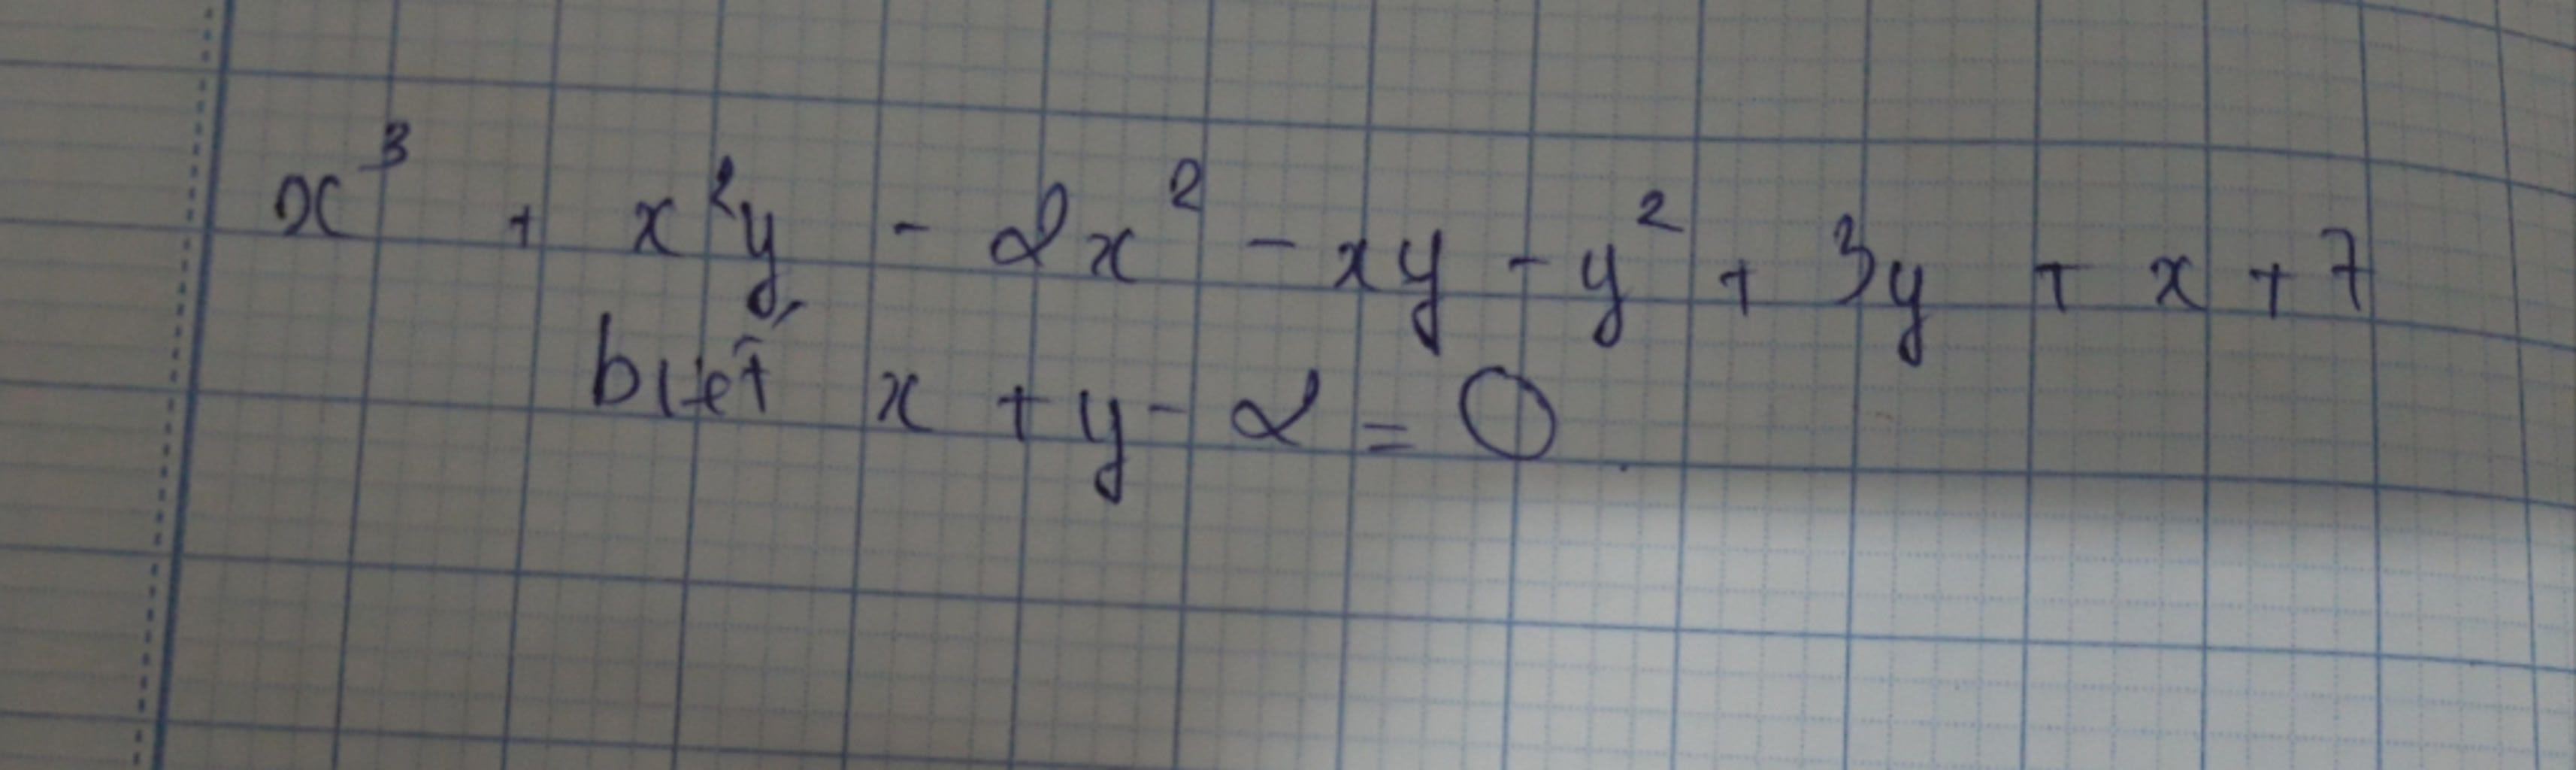 x³ + x²y - 2x² - xy - y² + 3y + x + 7
biết x + y - 2 = 0.